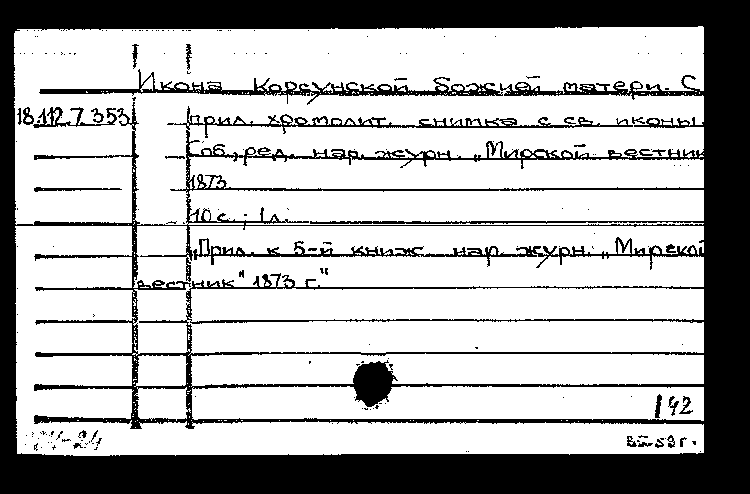 Икона Корсунской Божией матери. С
18.112.7.353 прил. хромолит. снимка с св. иконы.
Спб., ред. нар. журн. „Мирской вестник
1873.
10 с.; 1 л.
„Прил. к 5-й книж. нар. журн. „Мирской
вестник" 1873 г."
192
-24